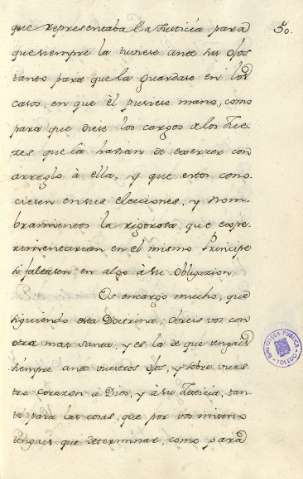 que representaba la Justicia para 50.
que siempre la tuviese ante sus ojos
tanto para que la guardase en los
casos en que él pusiese mano, como
para que diese los cargos a los Jue-
zes que la habian de exercer con
arreglo à ella, y que estos cono-
ciesen en sus elecciones, y nom-
bramientos la rigorosa, que expe-
rimentarian en el mismo Principe
si faltasen en algo à su obligazion.
Os encargo mucho, que
siguiendo esta Doctrina, deis vos con
otra mas sana, y es la de que tengais
siempre ante vuestros ojos, y sobre vues-
tro corazon à Dios, y à su Justicia, tan-
to para las cosas, que por vos mismo
tengais que determinar, como para
BIBLIOTECA PUBLICA
TOLEDO